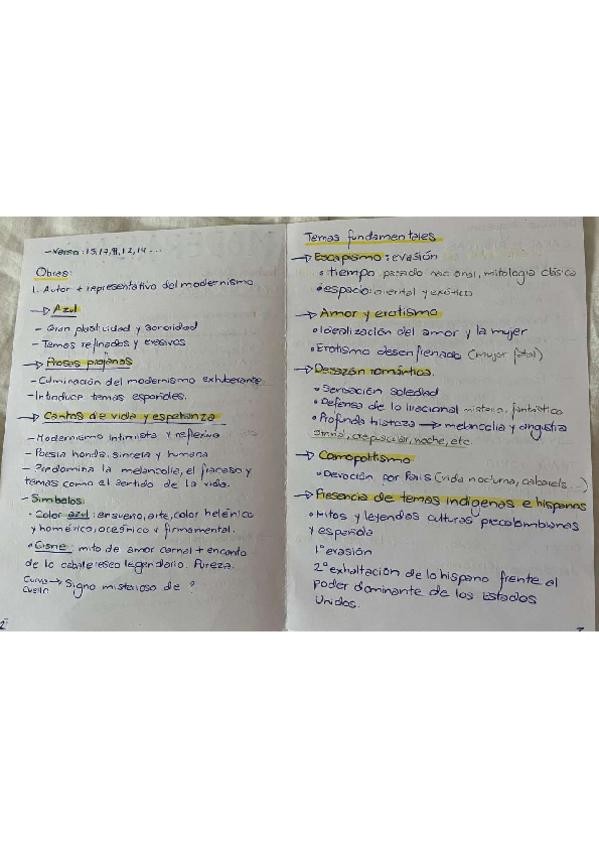 - Verso: 15,17,9,12,14...
Obras:
1. Autor + representativo del modernismo
→ Azul
- Gran plasticidad y sonoridad
- Temas refinados y evasivos
→ Prosas profanas
- Culminación del modernismo exhuberante
- Introduce temas españoles.
→ Cantos de vida y esperanza
- Modernismo intimista y reflexivo
- Poesía honda, sincera y humana
- Predomina la melancolía, el fracaso y
temas como el sentido de la vida.
- Símbolos:
• Color azul: ensueño, arte, color helénico
y homérico, oceánico y firmamental.
• Cisne: mito de amor carnal + encanto
de lo caballeresco legendario. Pureza.
Curva cuello → Signo misterioso de ?
2
Temas fundamentales
→ Escapismo: evasión
• tiempo pasado nacional, mitología clásica
• espacio: oriental y exótico
→ Amor y erotismo
• Idealización del amor y la mujer
• Erotismo desenfrenado (mujer fatal)
→ Desazón romántica.
• Sensación soledad
• Defensa de lo irracional misterio, fantástico
• Profunda tristeza → melancolía y angustia
otoñal, crepuscular, noche, etc.
→ Comopolitismo
• Devoción por París (vida nocturna, cabarets...)
→ Presencia de temas indígenas e hispanos
• Mitos y leyendas culturas precolombianas
y española
1º evasión
2º exhaltación de lo hispano frente al
poder dominante de los Estados
Unidos.